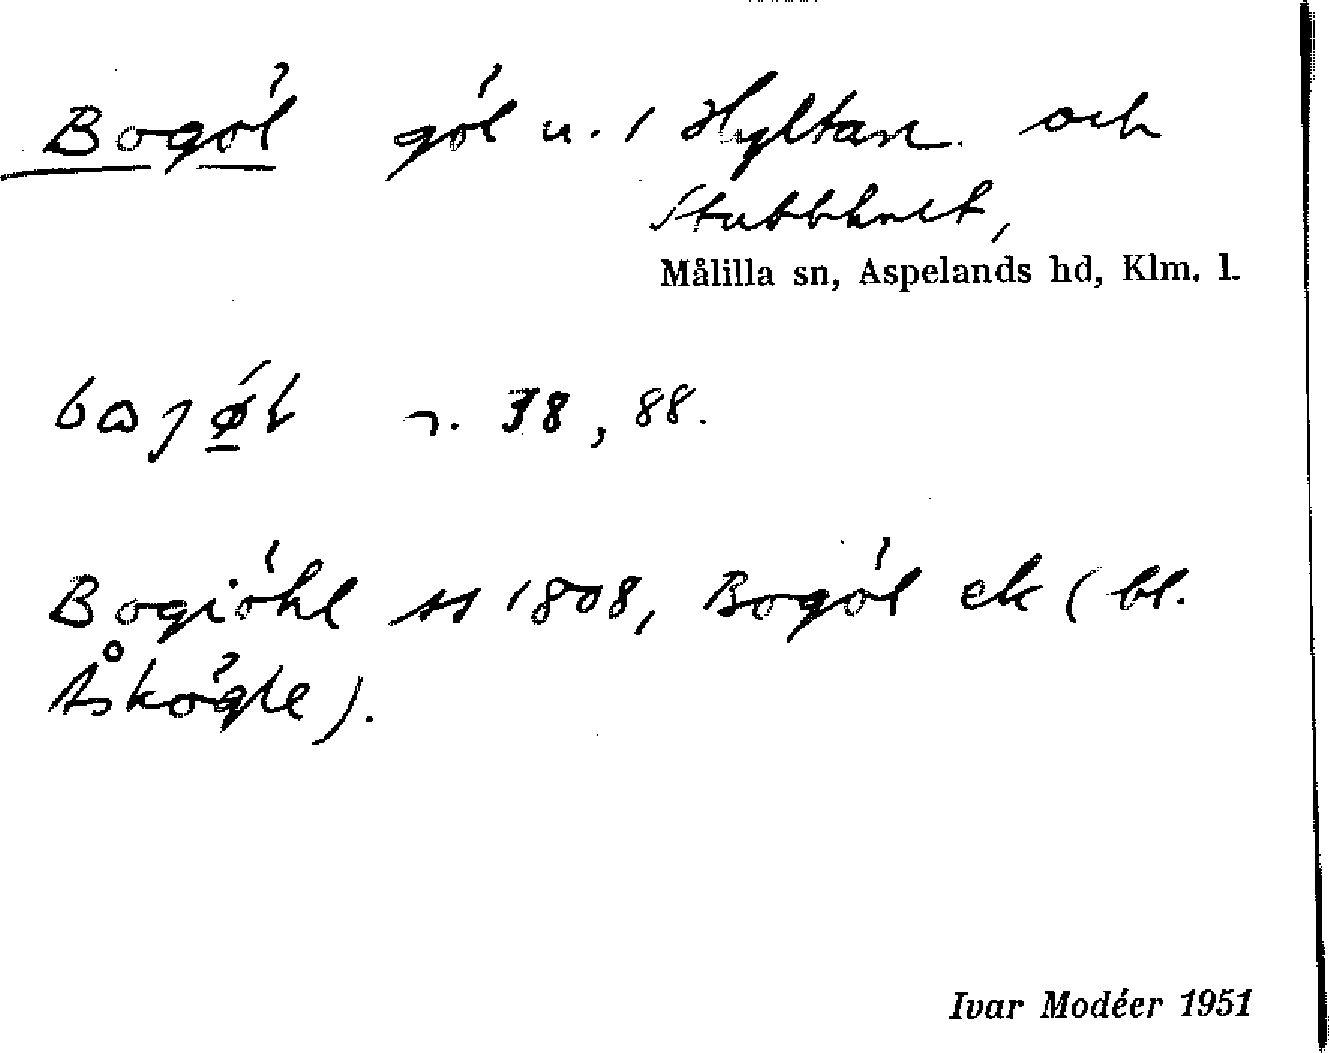 Bogöl göl u. Hyltan och
Stubbhult,
Målilla sn, Aspelands hd, Klm. l.
38, 88.
Bogiöhl ss 1808, Bogöl ek (bl.
Åskögle).
Ivar Modéer 1951